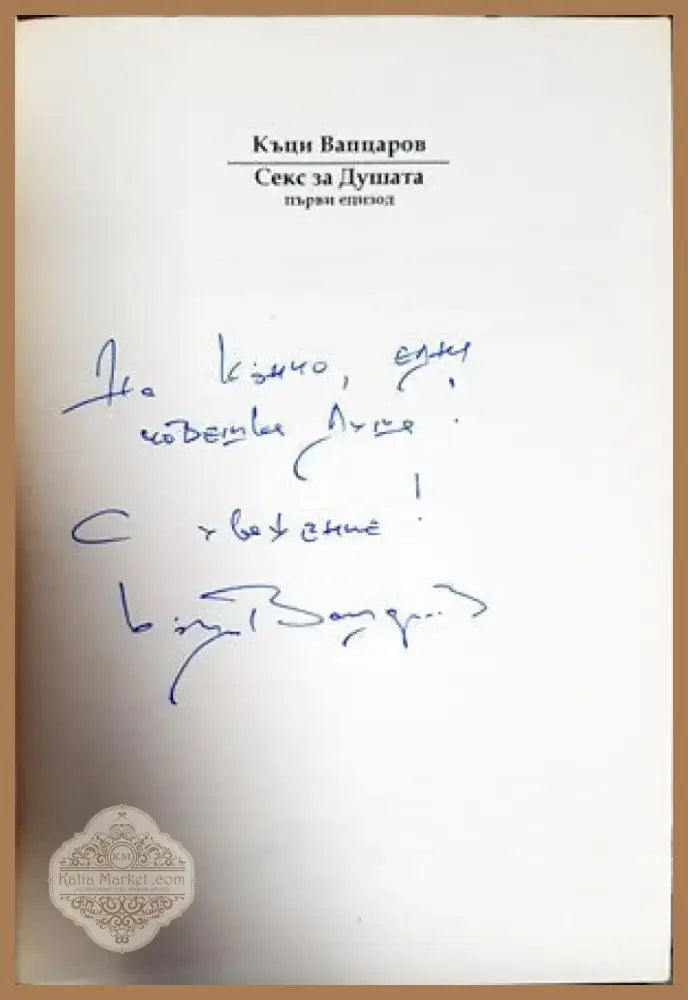 Къци Вапцаров
Секс за Душата
първи епизод
На Кънчо, една
човешка Душа!
С уважение!
Къци Вапцаров
KM
Katia Market .com